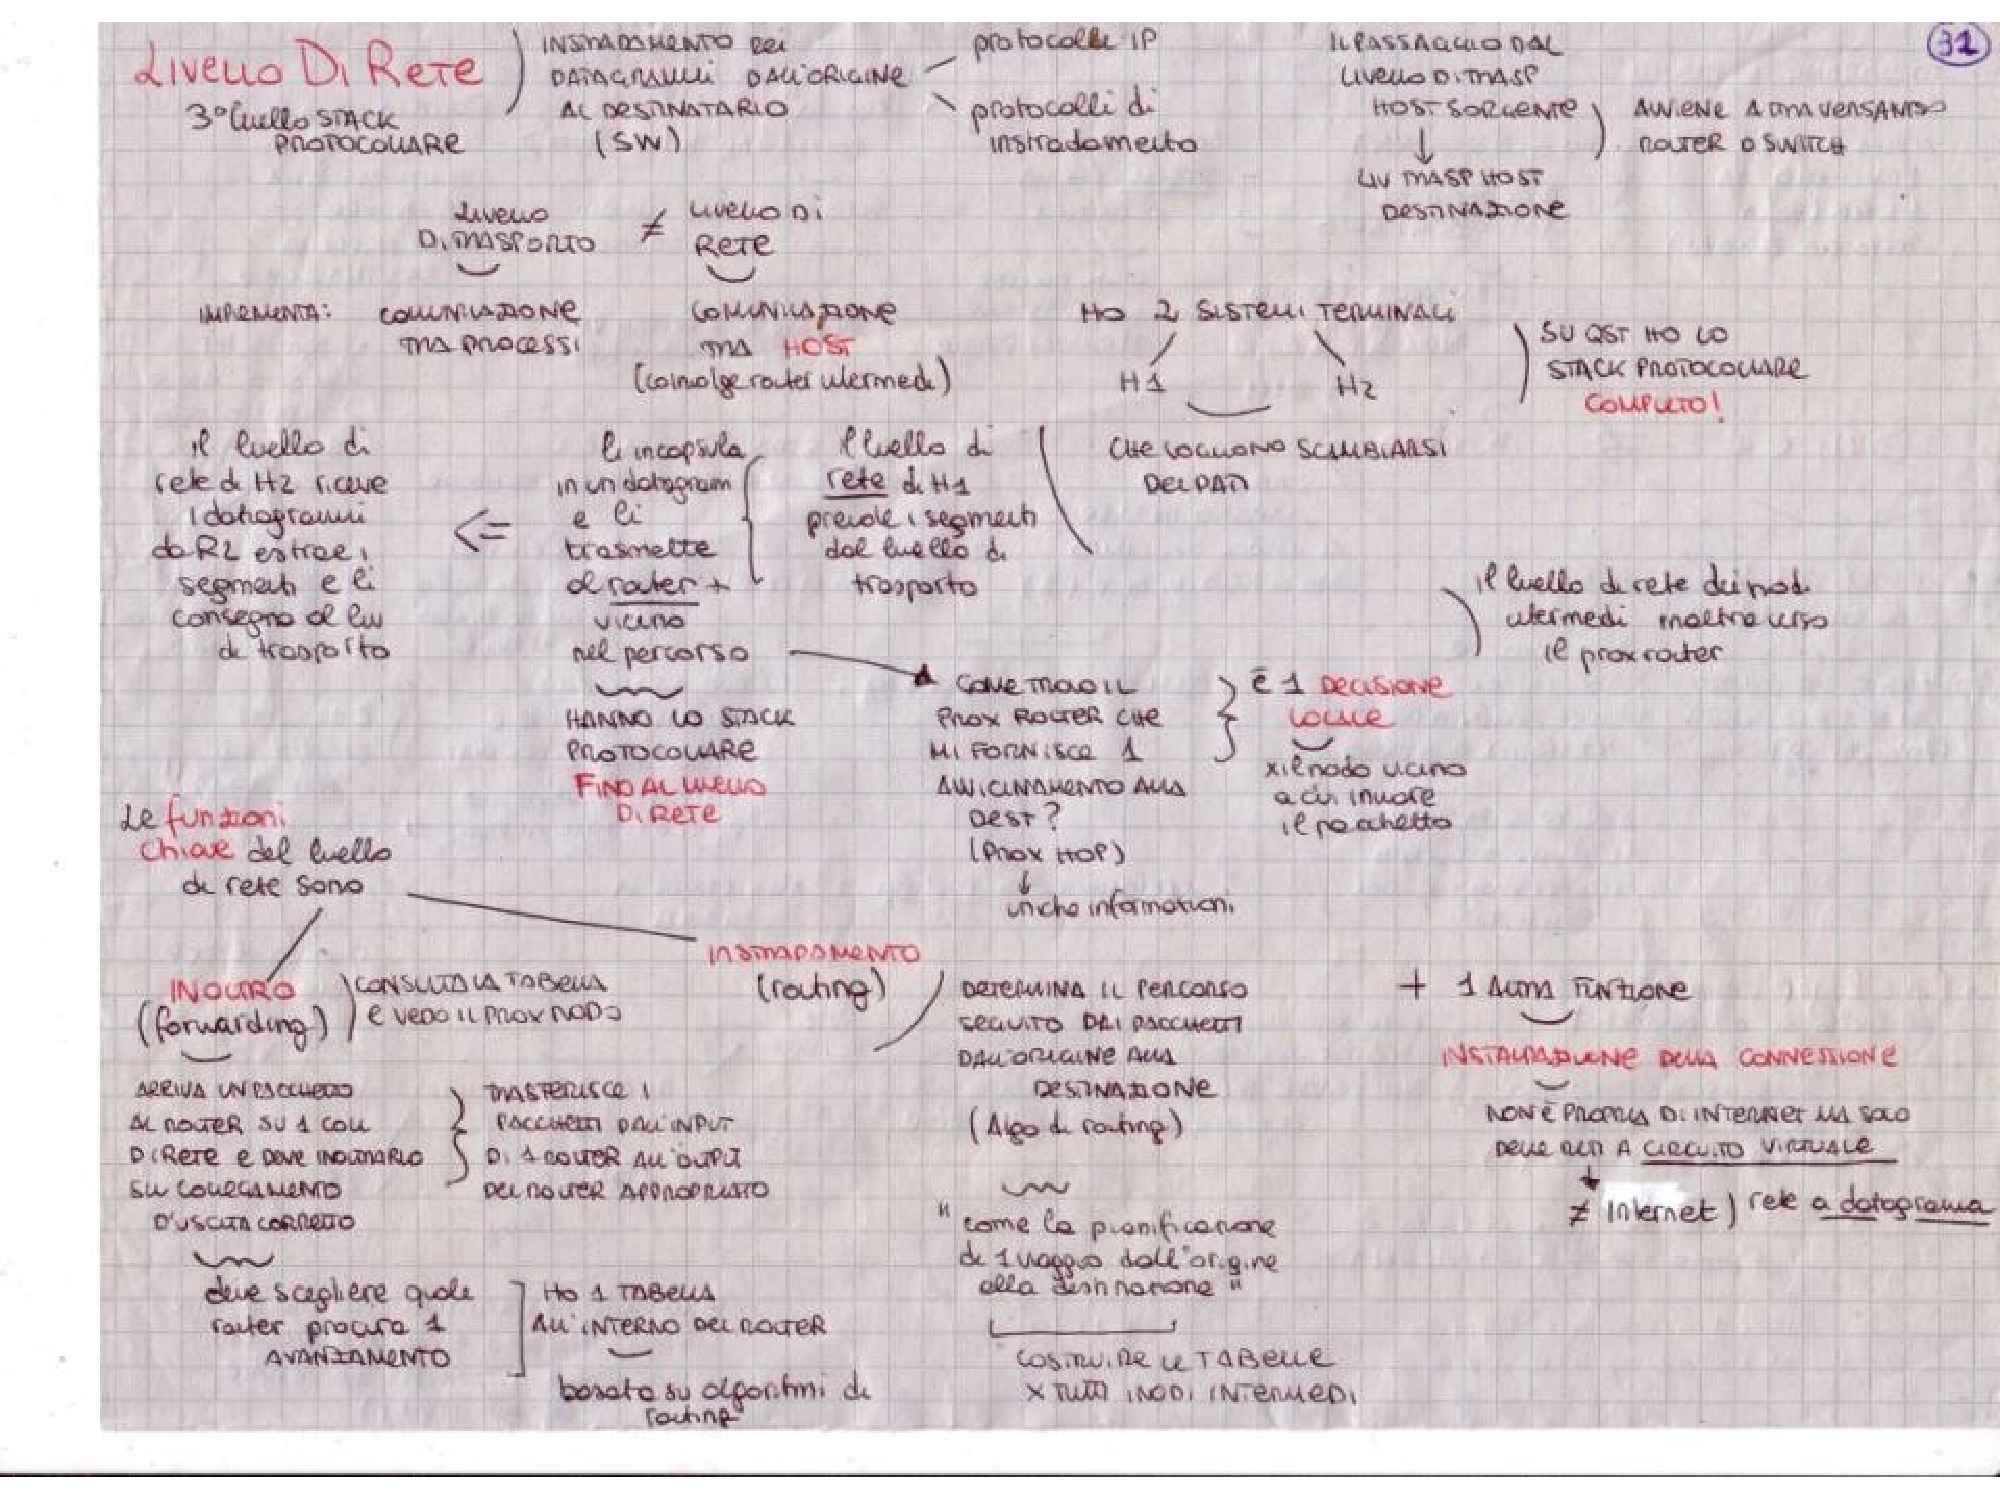 LIVELLO DI RETE
3° livello STACK
PROTOCOLLARE
INSTRADAMENTO DEI
DATAGRAMMI DALL'ORIGINE
AL DESTINATARIO
(SW)
protocolli IP
protocolli di
instradamento
IL PASSAGGIO DAL
LIVELLO DI TRASP
HOST SORGENTE
↓
LIV TRASP HOST
DESTINAZIONE
AVVIENE ATTRAVERSANDO
ROUTER O SWITCH
31
LIVELLO
DI TRASPORTO
≠
LIVELLO DI
RETE
IMPLEMENTA:
COMUNICAZIONE
TRA PROCESSI
COMUNICAZIONE
TRA HOST
(coinvolge router intermedi)
HO 2 SISTEMI TERMINALI
H1
H2
SU QST HO LO
STACK PROTOCOLLARE
COMPLETO!
CHE VOGLIONO SCAMBIARSI
DEI DATI
il livello di
rete di H1
prende i segmenti
dal livello di
trasporto
li incapsula
in un datagram
e li
trasmette
al router +
vicino
nel percorso
<=
il livello di
rete di H2 riceve
i datagrammi
da R2 estrae i
segmenti e li
consegna al liv
di trasporto
HANNO LO STACK
PROTOCOLLARE
FINO AL LIVELLO
DI RETE
COME TROVO IL
PROX ROUTER CHE
MI FORNISCE 1
AVVICINAMENTO ALLA
DEST?
(PROX HOP)
↓
anche informazioni
È 1 DECISIONE
LOCALE
x il nodo vicino
a cui inviare
il pacchetto
il livello di rete dei nodi
intermedi inoltra verso
il prox router
Le funzioni
chiave del livello
di rete sono
INOLTRO
(forwarding)
CONSULTA LA TABELLA
E VEDO IL PROX NODO
ARRIVA UN PACCHETTO
AL ROUTER SU 1 COLL
DI RETE E DEVE INOLTRARLO
SU COLLEGAMENTO
D'USCITA CORRETTO
TRASFERISCE I
PACCHETTI DALL'INPUT
DI 1 ROUTER ALL'OUTPUT
DEL ROUTER APPROPRIATO
deve scegliere quale
router procura 1
AVANZAMENTO
HO 1 TABELLA
ALL'INTERNO DEL ROUTER
basata su algoritmi di
routing
INSTRADAMENTO
(routing)
DETERMINA IL PERCORSO
SEGUITO DAI PACCHETTI
DALL'ORIGINE ALLA
DESTINAZIONE
(Algo di routing)
" come la pianificazione
di 1 viaggio dall'origine
alla destinazione "
COSTRUIRE LE TABELLE
X TUTTI I NODI INTERMEDI
+ 1 ALTRA FUNZIONE
INSTAURAZIONE DELLA CONNESSIONE
NON È PROPRIA DI INTERNET MA SOLO
DELLE RETI A CIRCUITO VIRTUALE
≠ Internet) rete a datagramma